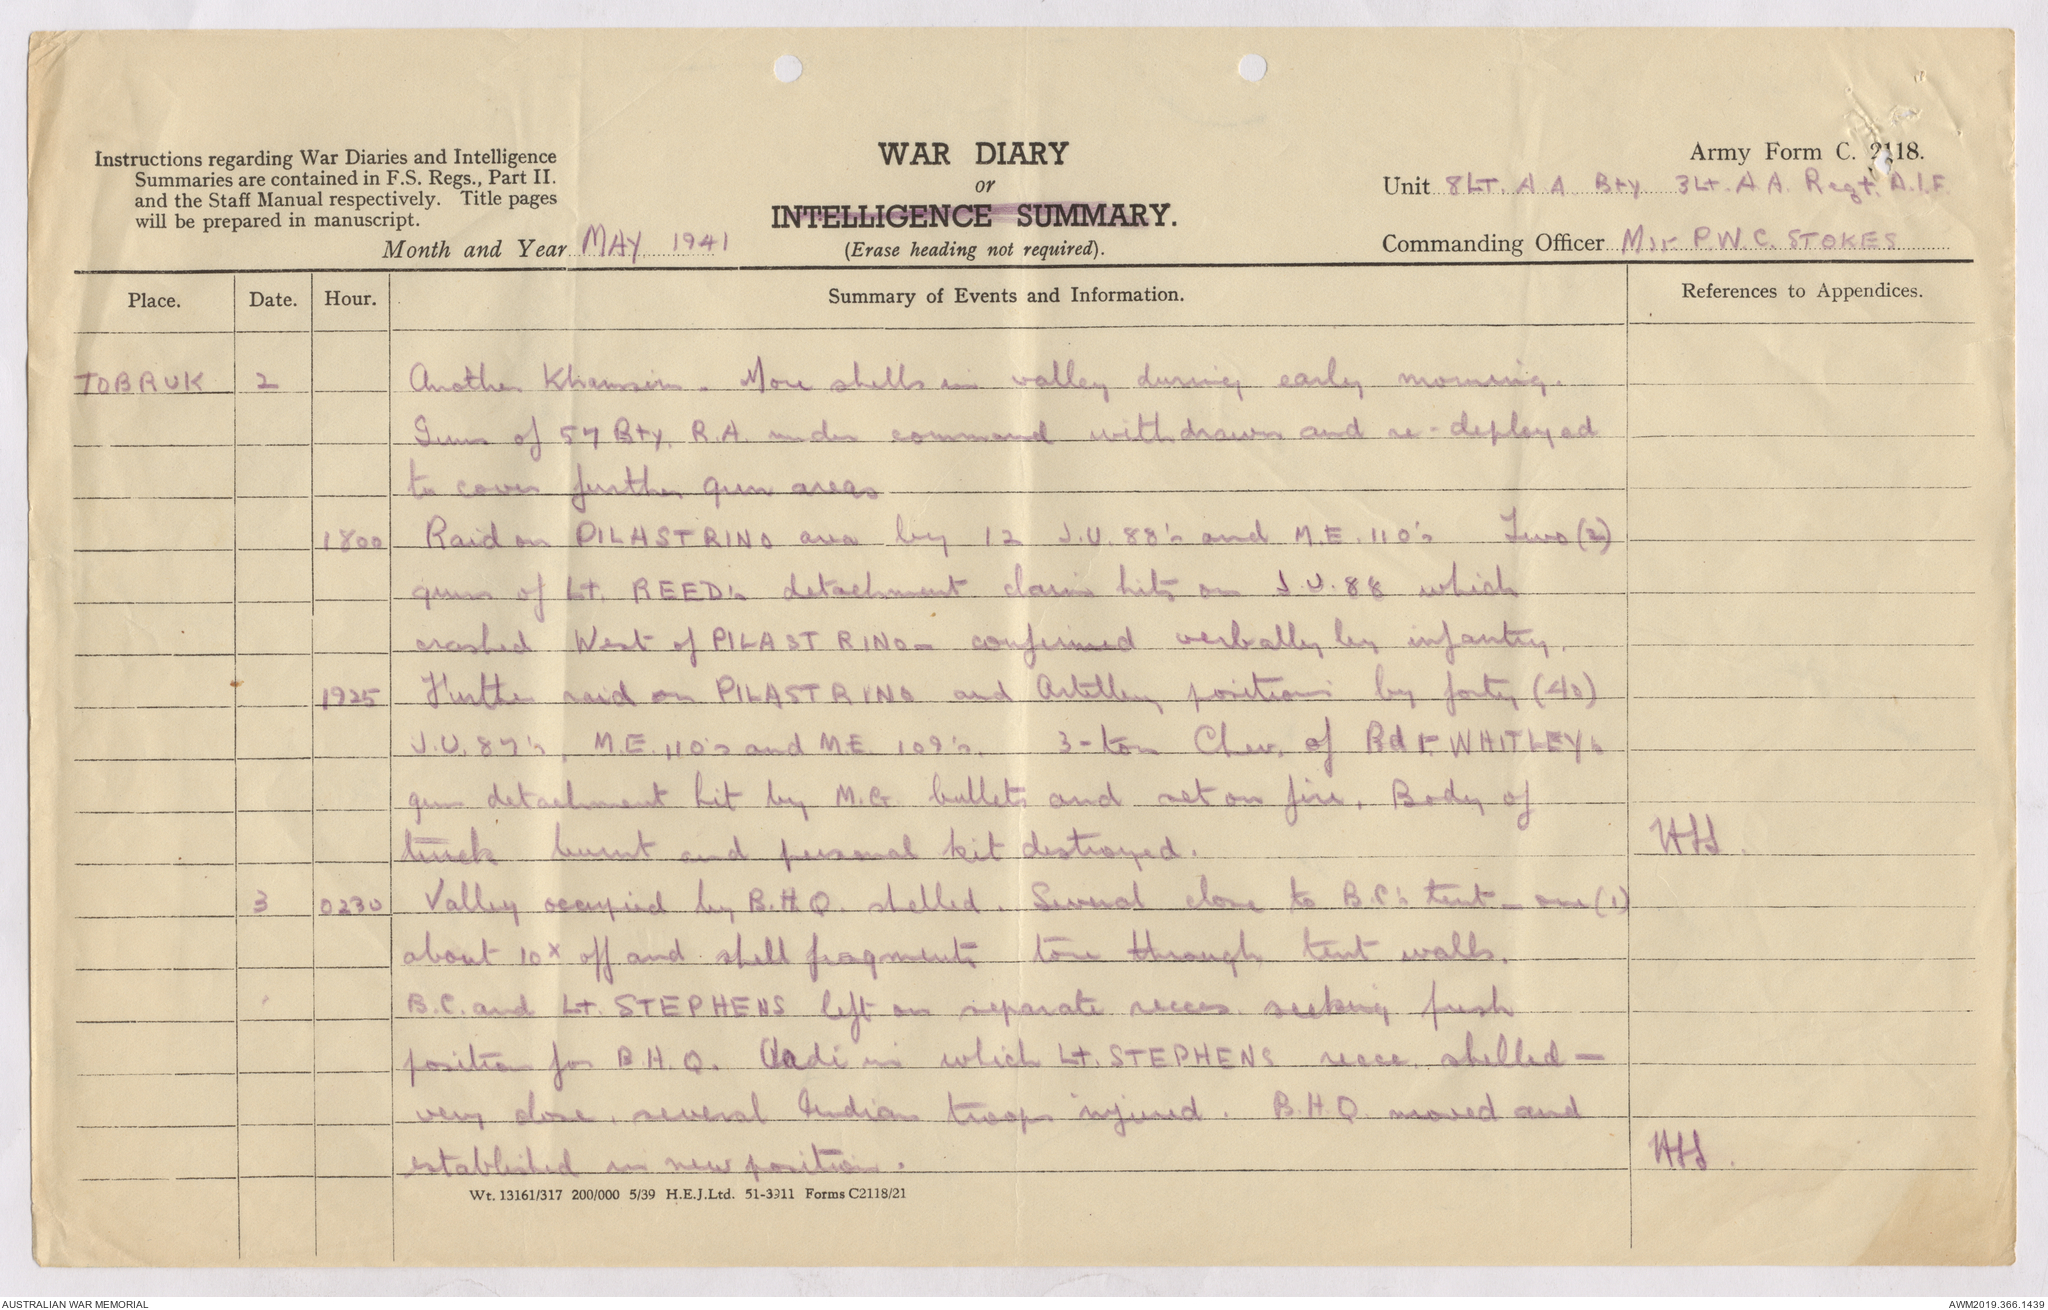 Instructions regarding War Diaries and Intelligence
Summaries are contained in F.S. Regs., Part II.
and the Staff Manual respectively. Title pages
will be prepared in manuscript.
Month and Year MAY 1941
WAR DIARY
or
INTELLIGENCE SUMMARY.
(Erase heading not required).
Army Form C. 2118.
Unit 8 Lt. A A Bty 3 Lt. A A. Regt. A.I.F.
Commanding Officer Mjr P.W.C. STOKES
Place. Date. Hour. Summary of Events and Information. References to Appendices.
TOBRUK 2 Another Khamsin. More shells in valley during early morning.
Guns of 57 Bty. R.A. under command withdrawn and re-deployed
to cover further gun areas
1800 Raid on PILASTRINO area by 12 J.U. 88's and M.E. 110's Two (2)
guns of Lt. REED's detachment claim hits on J.U. 88 which
crashed West of PILASTRINO - confirmed verbally by infantry.
1925 Further raid on PILASTRINO and Artillery positions by forty (40)
J.U. 87's, M.E. 110's and M.E. 109's. 3-ton Chev. of Bdr. WHITLEY's
gun detachment hit by M.G. bullets and set on fire. Body of
truck burnt and personal kit destroyed.
3 0230 Valley occupied by B.H.Q. shelled. Several close to B.C's tent - one (1)
about 10x off and shell fragments tore through tent walls.
B.C. and Lt. STEPHENS left on separate recces. seeking fresh
position for B.H.Q. Wadi in which Lt. STEPHENS recce. shelled -
very close, several Indian troops injured. B.H.Q. moved and
established in new position.
Wt. 13161/317 200/000 5/39 H.E.J.Ltd. 51-3911 Forms C2118/21
AUSTRALIAN WAR MEMORIAL
AWM2019.366.1439